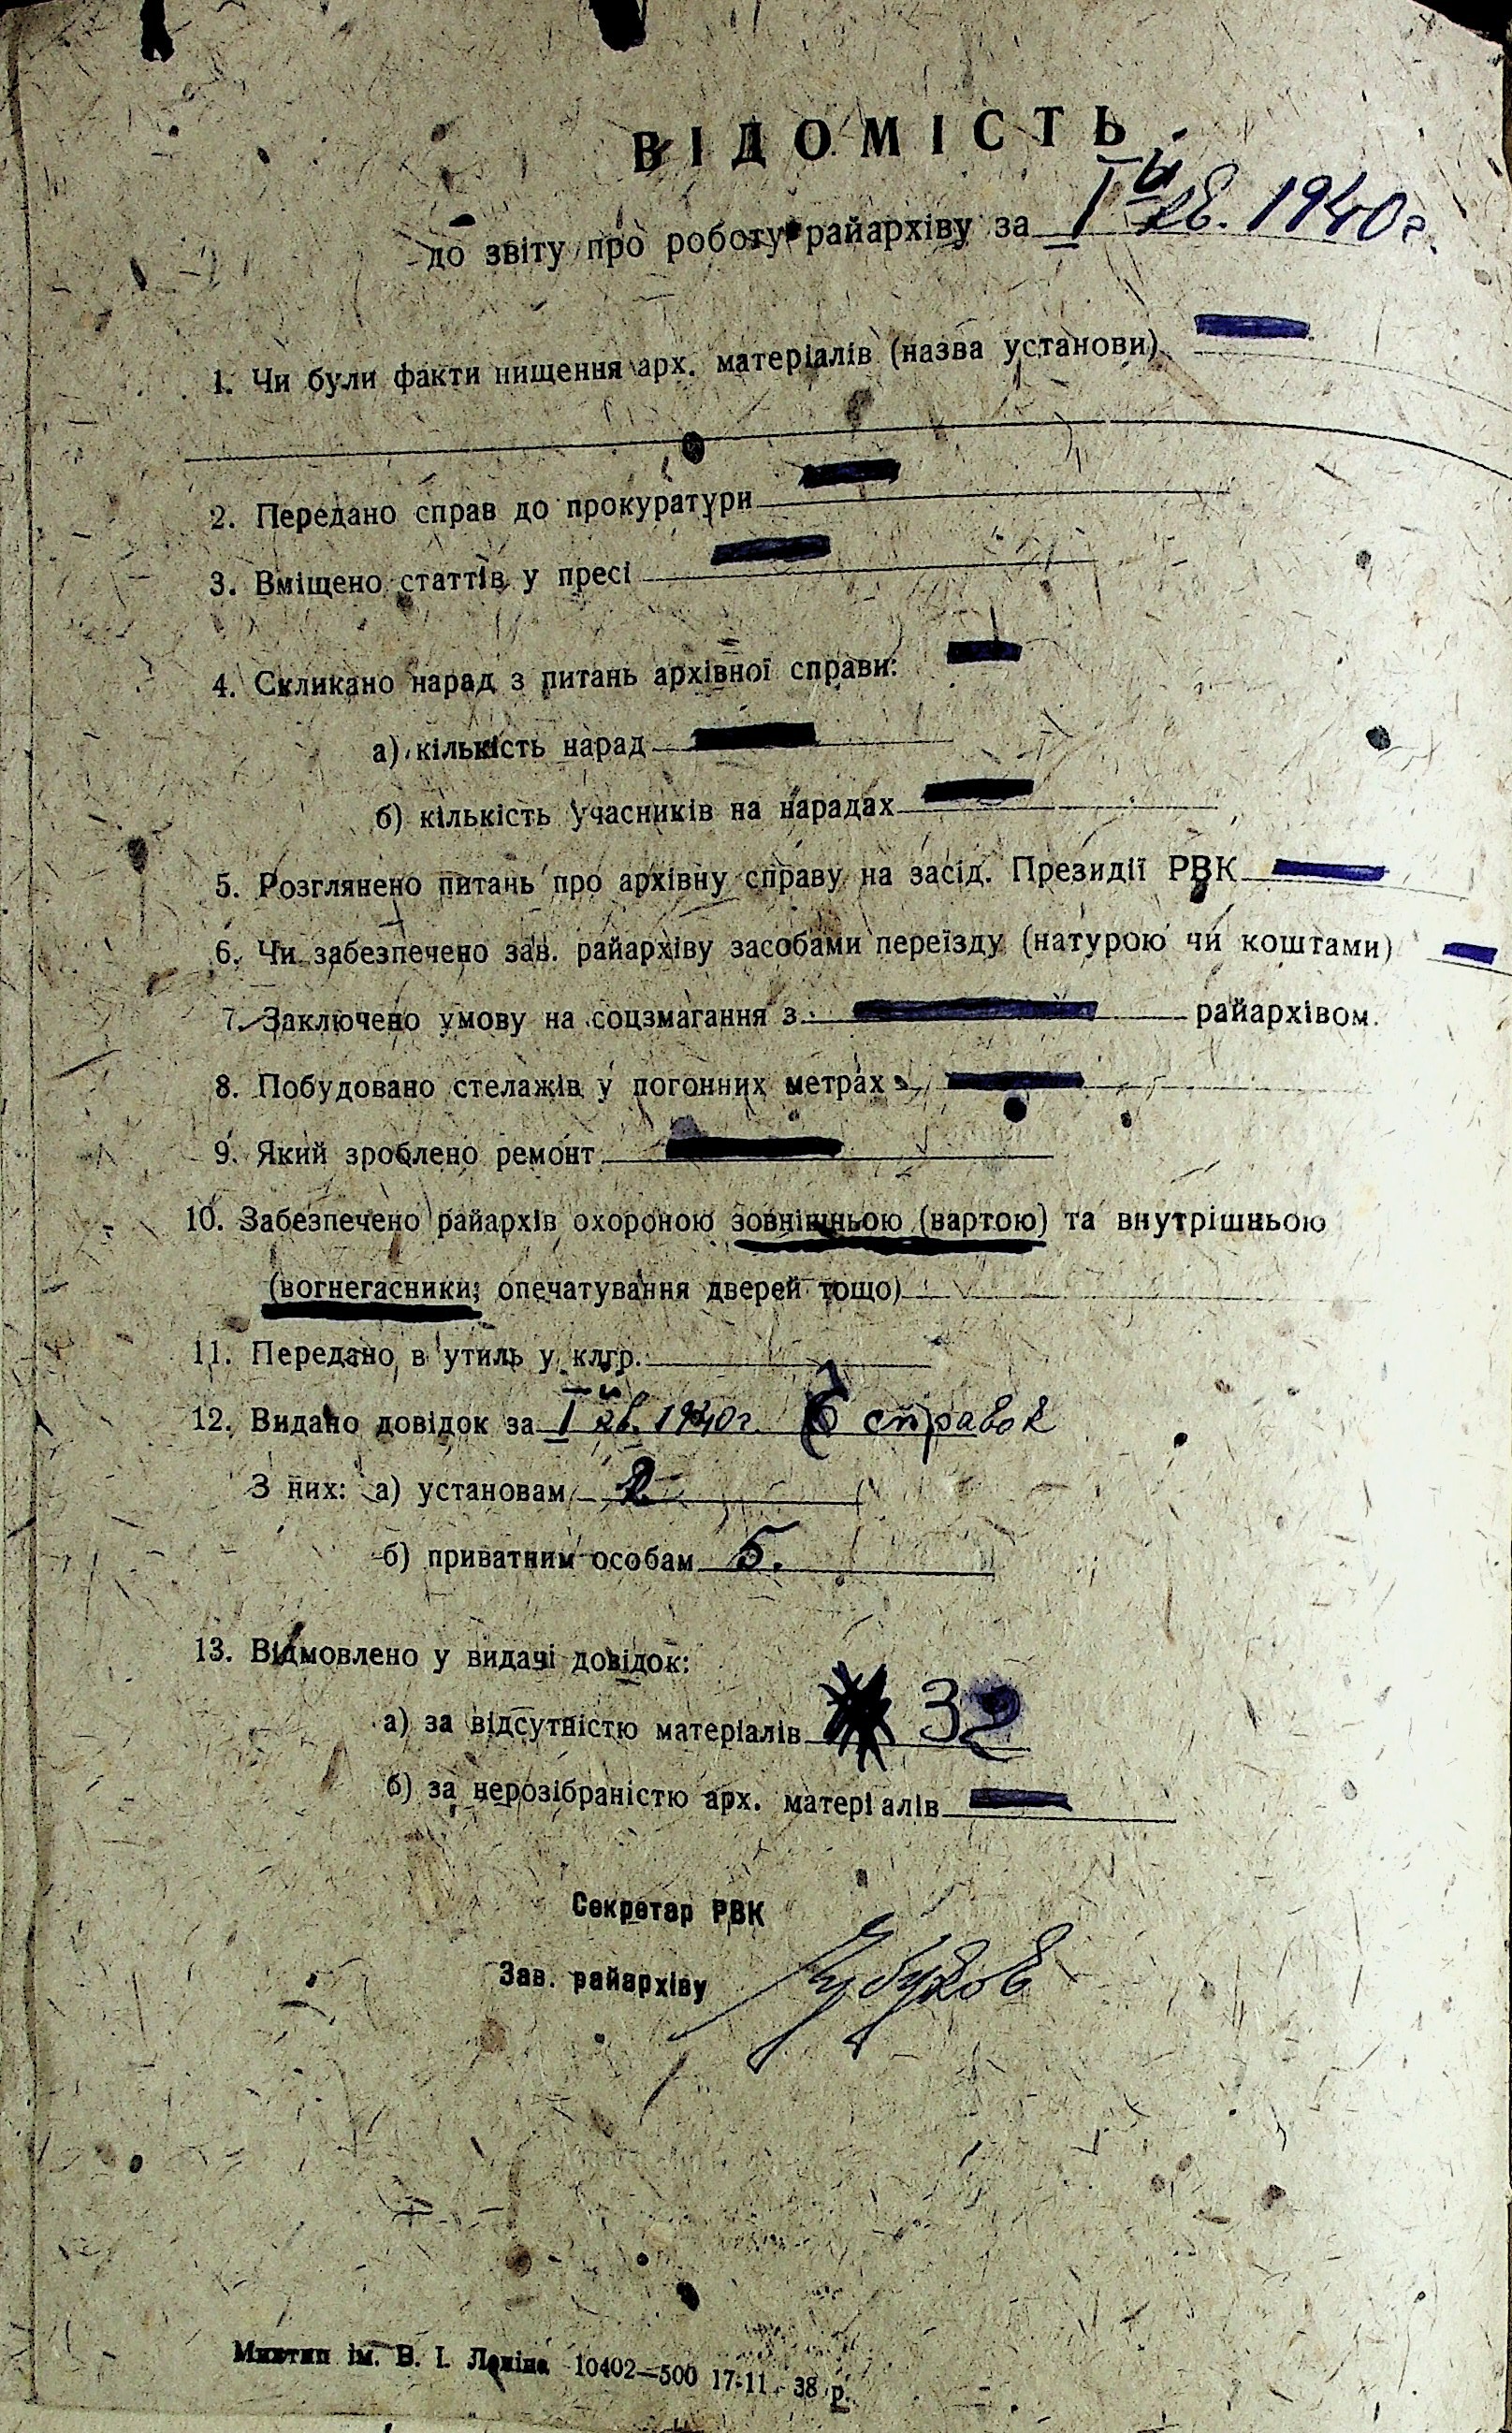 ВІДОМІСТЬ
до звіту про роботу райархіву за Iый кв. 1940г.
1. Чи були факти нищення арх. матеріалів (назва установи)
2. Передано справ до прокуратури
3. Вміщено статтів у пресі
4. Скликано нарад з питань архівної справи:
а) кількість нарад
б) кількість учасників на нарадах
5. Розглянено питань про архівну справу на засід. Президії РВК
6. Чи забезпечено зав. райархіву засобами переїзду (натурою чи коштами)
7. Заключено умову на соцзмагання з райархівом.
8. Побудовано стелажів у погонних метрах
9. Який зроблено ремонт
10. Забезпечено райархів охороною зовнішньою (вартою) та внутрішньою
(вогнегасники; опечатування дверей тощо)
11. Передано в утиль у клгр.
12. Видано довідок за I й кв. 1940г. справок
З них: а) установам 2
б) приватним особам 5.
13. Відмовлено у видачі довідок:
а) за відсутністю матеріалів 32
б) за нерозібраністю арх. матеріалів
Секретар РВК
Зав. райархіву
ім. В. І. Леніна 10402—500 17-11-38 р.